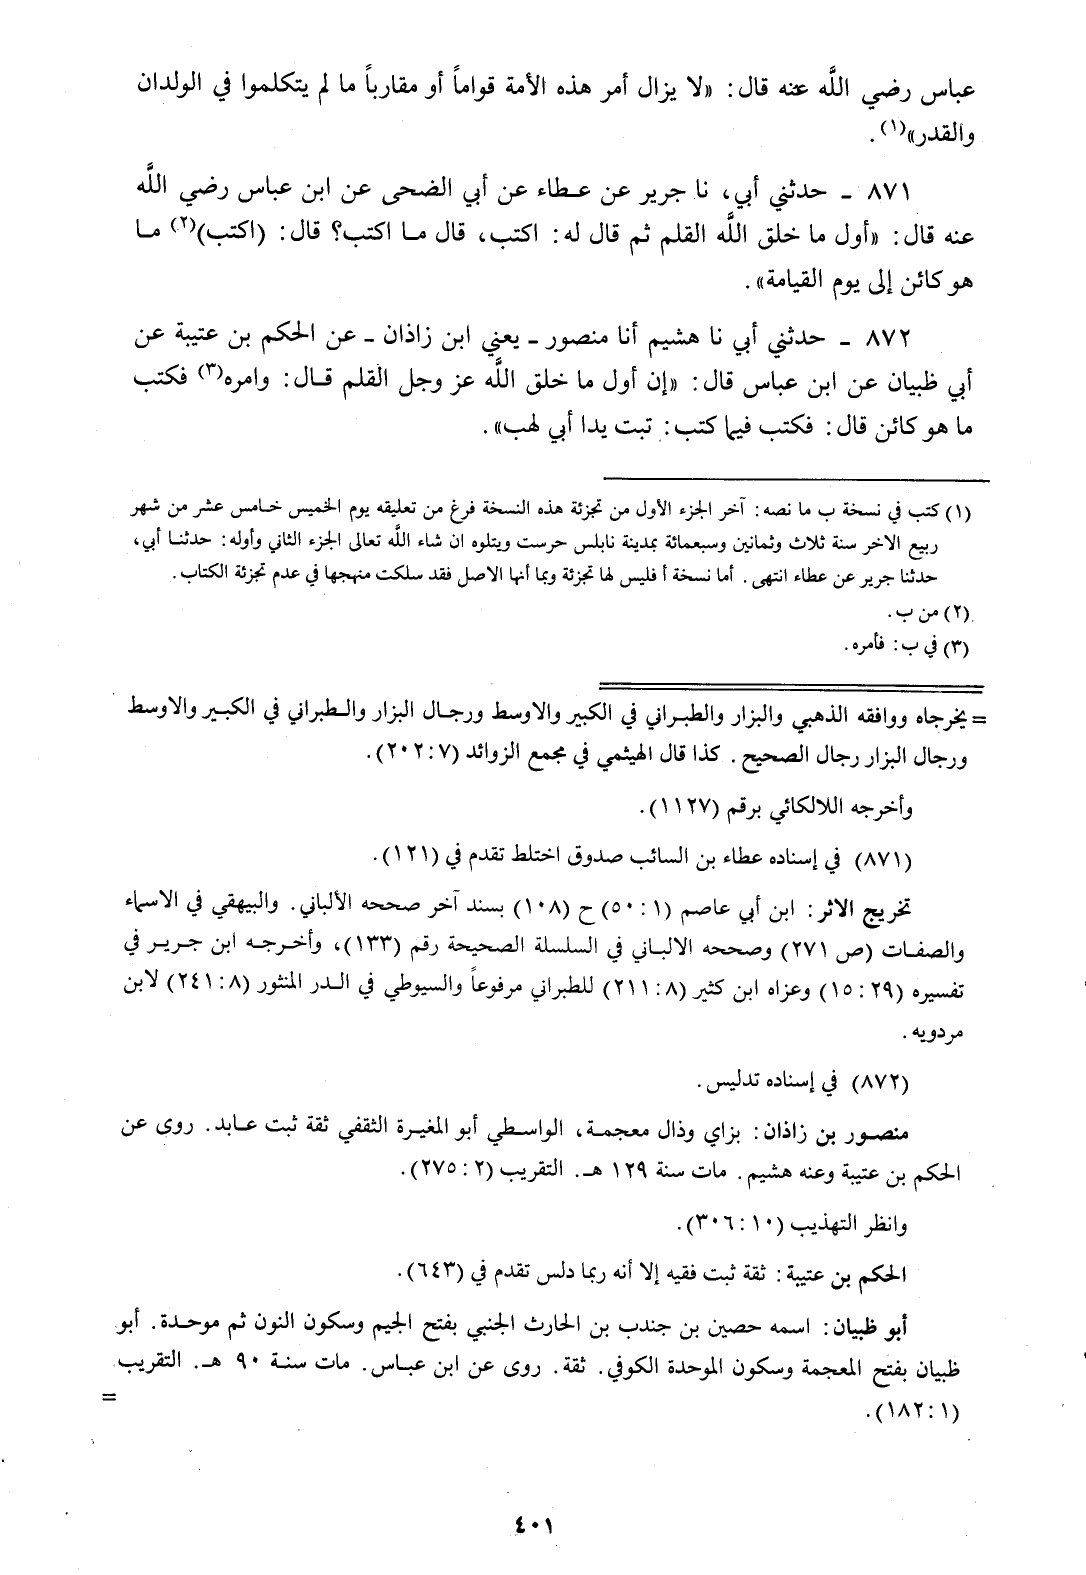 عباس رضي اللَّه عنه قال: «لا يزال أمر هذه الأمة قواماً أو مقارباً ما لم يتكلموا في الولدان
والقدر»(١).
٨٧١ ـ حدثني أبي، نا جرير عن عطاء عن أبي الضحى عن ابن عباس رضي اللَّه
عنه قال: «أول ما خلق اللَّه القلم ثم قال له: اكتب، قال ما اكتب؟ قال: (اكتب)(٢) ما
هو كائن إلى يوم القيامة».
٨٧٢ ـ حدثني أبي نا هشيم أنا منصور ـ يعني ابن زاذان ـ عن الحكم بن عتيبة عن
أبي ظبيان عن ابن عباس قال: «إن أول ما خلق اللَّه عز وجل القلم قال: وامره(٣) فكتب
ما هو كائن قال: فكتب فيما كتب: تبت يدا أبي لهب».
(١) كتب في نسخة ب ما نصه: آخر الجزء الأول من تجزئة هذه النسخة فرغ من تعليقه يوم الخميس خامس عشر من شهر
ربيع الاخر سنة ثلاث وثمانين وسبعمائة بمدينة نابلس حرست ويتلوه ان شاء اللَّه تعالى الجزء الثاني وأوله: حدثنا أبي،
حدثنا جرير عن عطاء انتهى. أما نسخة أ فليس لها تجزئة وبما أنها الاصل فقد سلكت منهجها في عدم تجزئة الكتاب.
(٢) من ب.
(٣) في ب: فأمره.
= يخرجاه ووافقه الذهبي والبزار والطبراني في الكبير والاوسط ورجال البزار والطبراني في الكبير والاوسط
ورجال البزار رجال الصحيح. كذا قال الهيثمي في مجمع الزوائد (٧: ٢٠٢).
وأخرجه اللالكائي برقم (١١٢٧).
(٨٧١) في إسناده عطاء بن السائب صدوق اختلط تقدم في (١٢١).
تخريج الاثر: ابن أبي عاصم (١: ٥٠) ح (١٠٨) بسند آخر صححه الألباني. والبيهقي في الاسماء
والصفات (ص ٢٧١) وصححه الالباني في السلسلة الصحيحة رقم (١٣٣)، وأخرجه ابن جرير في
تفسيره (٢٩: ١٥) وعزاه ابن كثير (٨: ٢١١) للطبراني مرفوعاً والسيوطي في الدر المنثور (٨: ٢٤١) لابن
مردويه.
(٨٧٢) في إسناده تدليس.
منصور بن زاذان: بزاي وذال معجمة، الواسطي أبو المغيرة الثقفي ثقة ثبت عابد. روى عن
الحكم بن عتيبة وعنه هشيم. مات سنة ١٢٩ هـ. التقريب (٢: ٢٧٥).
وانظر التهذيب (١٠: ٣٠٦).
الحكم بن عتيبة: ثقة ثبت فقيه إلا أنه ربما دلس تقدم في (٦٤٣).
أبو ظبيان: اسمه حصين بن جندب بن الحارث الجنبي بفتح الجيم وسكون النون ثم موحدة. أبو
ظبيان بفتح المعجمة وسكون الموحدة الكوفي. ثقة. روى عن ابن عباس. مات سنة ٩٠ هـ. التقريب
(١: ١٨٢). =
٤٠١